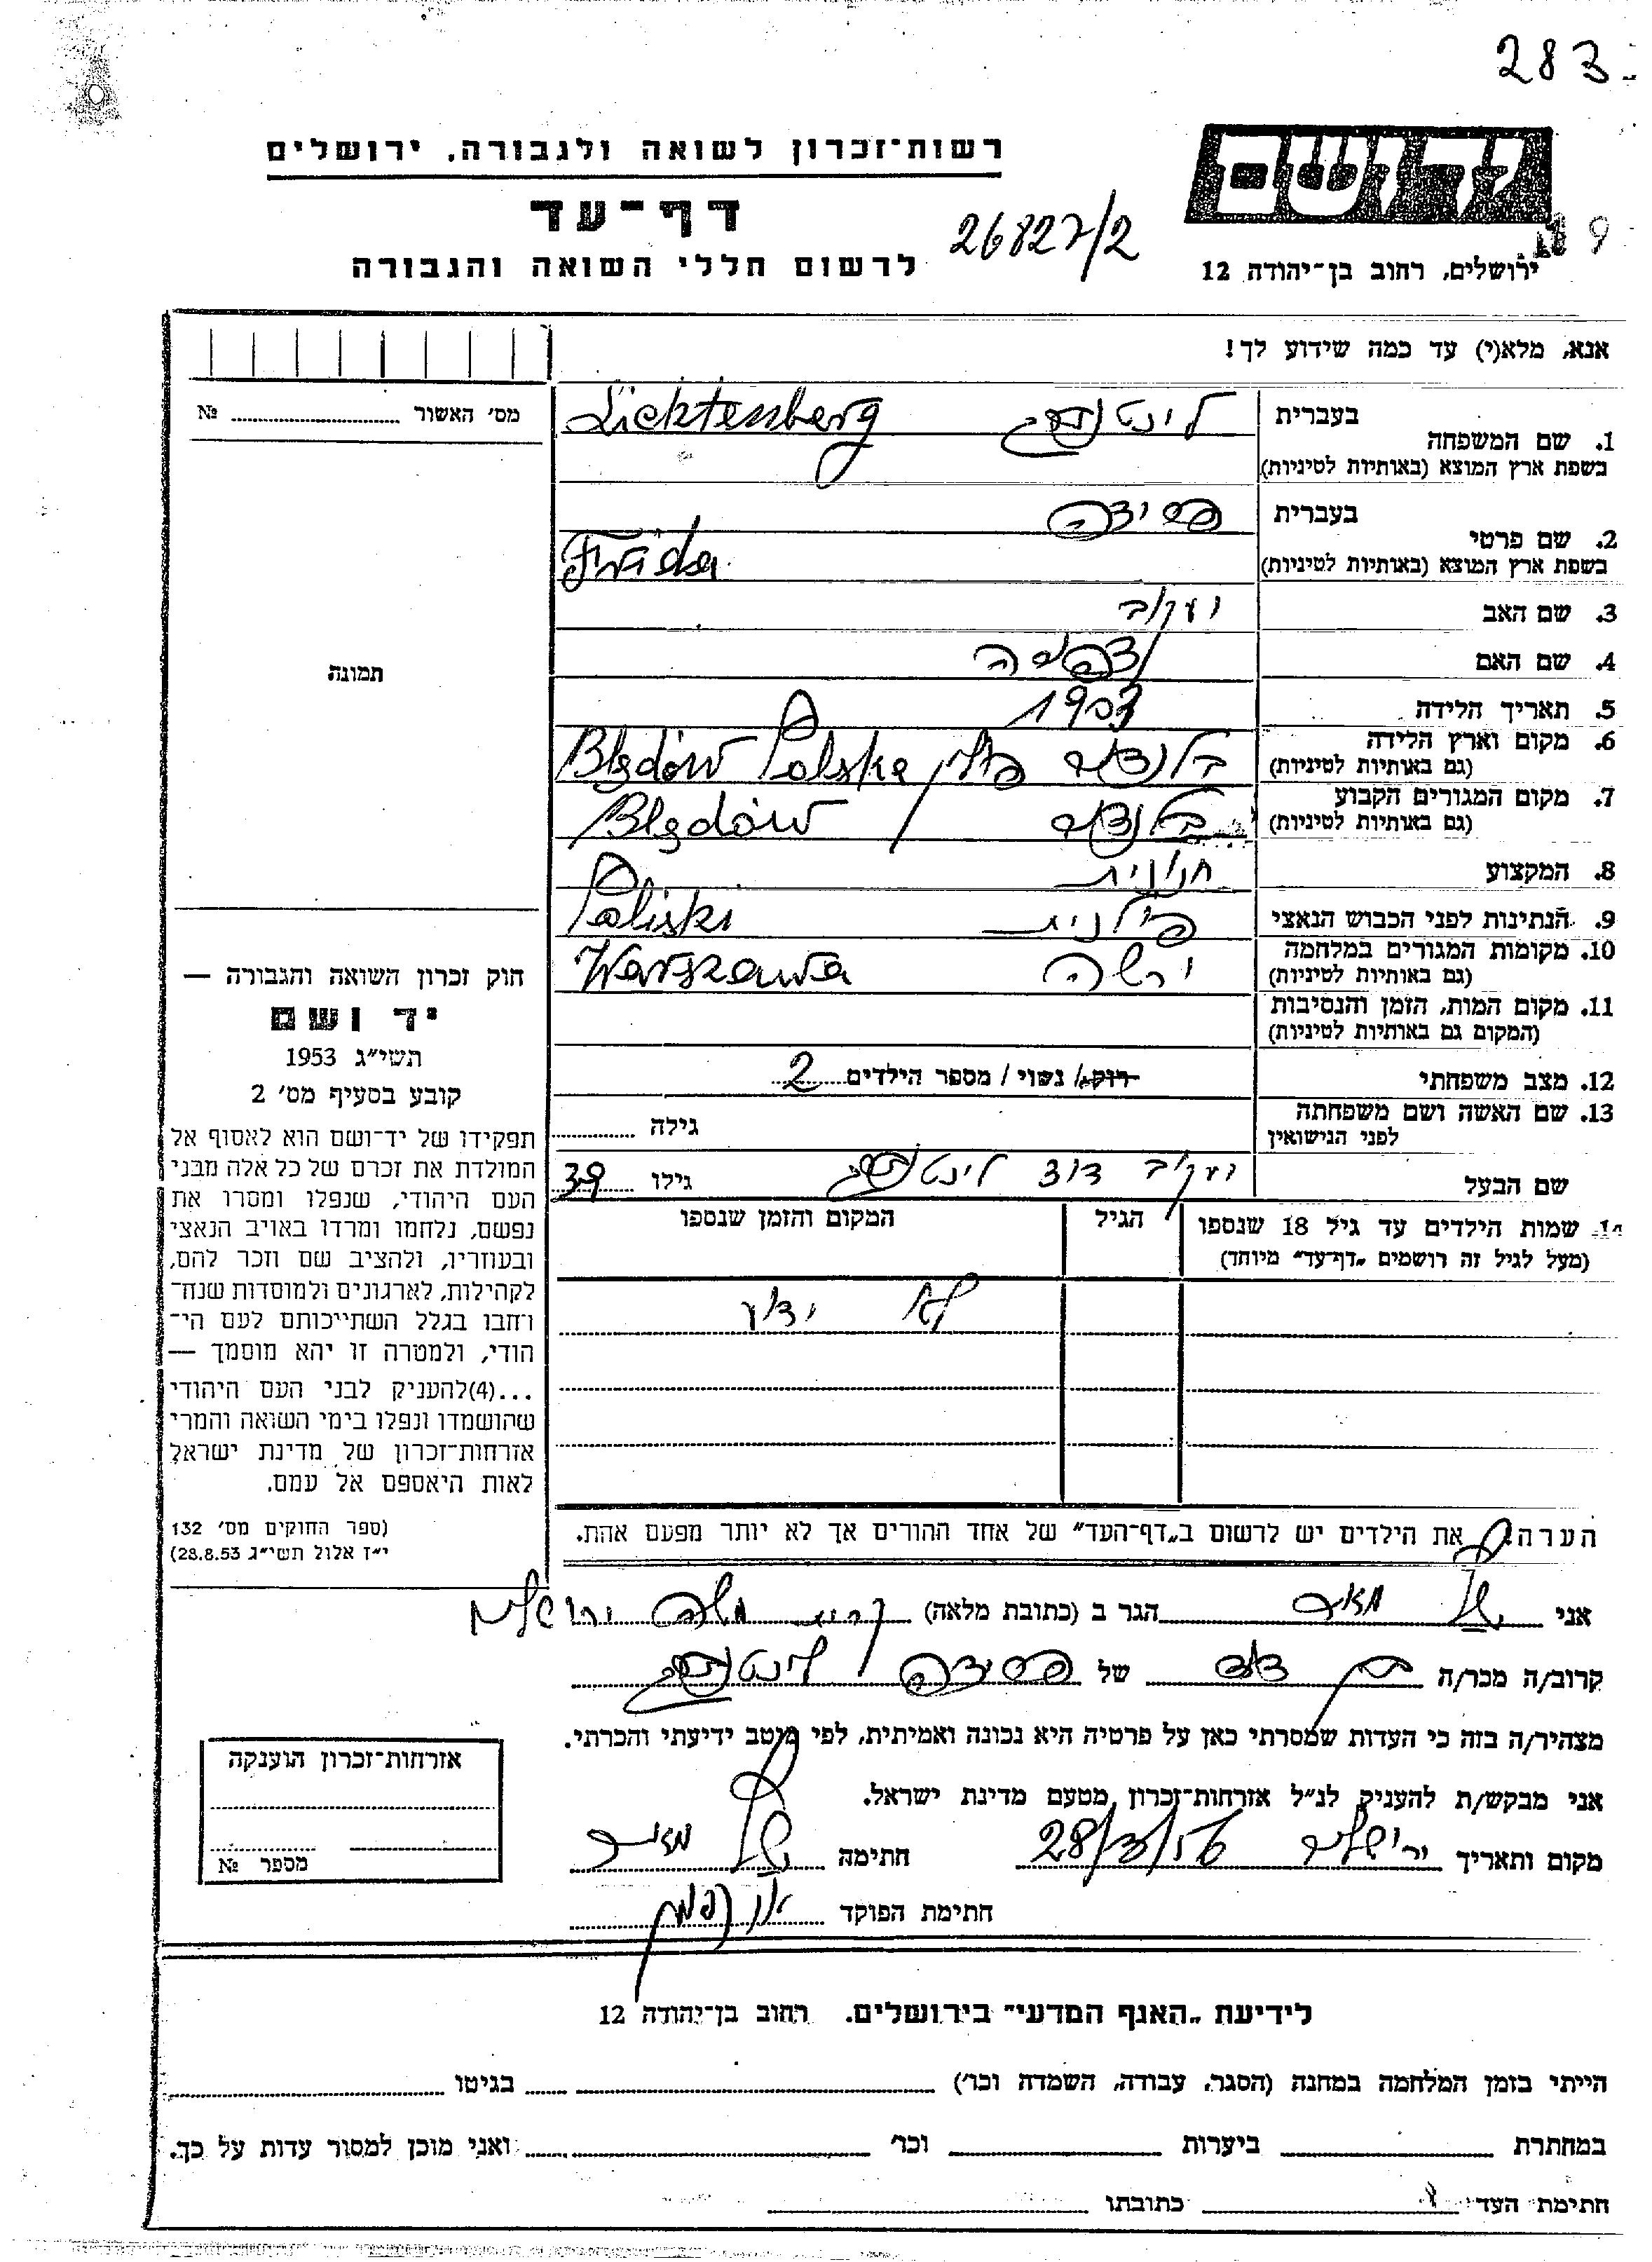 283
רשות־זכרון לשואה ולגבורה, ירושלים
ידושם
דף־עד
26827/2
לרשום חללי השואה והגבורה
ירושלים, רחוב בן־יהודה 12
אנא, מלא(י) עד כמה שידוע לך!
מס׳ האשור № 
בעברית
1. שם המשפחה
בשפת ארץ המוצא (באותיות לטיניות)
ליכטנברג Licktenberg
בעברית
2. שם פרטי
בשפת ארץ המוצא (באותיות לטיניות)
פרידה
Frida
3. שם האב יעקב
4. שם האם
5. תאריך הלידה 1903
6. מקום וארץ הלידה
(גם באותיות לטיניות)
בלנדוב פולין Błędów Polska
7. מקום המגורים הקבוע
(גם באותיות לטיניות)
בלנדוב Błędów
8. המקצוע חנונית
9. הנתינות לפני הכבוש הנאצי פולנית Polski
10. מקומות המגורים במלחמה
(גם באותיות לטיניות)
ורשה Warszawa
11. מקום המות, הזמן והנסיבות
(המקום גם באותיות לטיניות)
12. מצב משפחתי רוק/ נשוי / מספר הילדים 2
13. שם האשה ושם משפחתה
לפני הנישואין
גילה
שם הבעל יעקב דוד ליכטנברג גילו 39
14. שמות הילדים עד גיל 18 שנספו
(מעל לגיל זה רושמים „דף־עד" מיוחד)
הגיל
המקום והזמן שנספו
לא ידוע
הערה: את הילדים יש לרשום ב„דף־העד" של אחד ההורים אך לא יותר מפעם אחת.
תמונה
חוק זכרון השואה והגבורה —
יד ושם
תשי״ג 1953
קובע בסעיף מס׳ 2
תפקידו של יד־ושם הוא לאסוף אל
המולדת את זכרם של כל אלה מבני
העם היהודי, שנפלו ומסרו את
נפשם, נלחמו ומרדו באויב הנאצי
ובעוזריו, ולהציב שם וזכר להם,
לקהילות, לארגונים ולמוסדות שנח־
רבו בגלל השתייכותם לעם הי־
הודי, ולמטרה זו יהא מוסמך —
...(4)להעניק לבני העם היהודי
שהושמדו ונפלו בימי השואה והמרי
אזרחות־זכרון של מדינת ישראל
לאות היאספם אל עמם.
(ספר החוקים מס׳ 132
י״ז אלול תשי״ג 28.8.53)
אני מאיר הגר ב (כתובת מלאה) קרית משה ירושלים
קרוב/ה מכר/ה בן דוד של פרידה ליכטנברג
מצהיר/ה בזה כי העדות שמסרתי כאן על פרטיה היא נכונה ואמיתית, לפי מיטב ידיעתי והכרתי.
אני מבקש/ת להעניק לנ״ל אזרחות־זכרון מטעם מדינת ישראל.
מקום ותאריך ירושלים 28/3/56 חתימה מאיר
חתימת הפוקד
אזרחות־זכרון הוענקה
מספר №
לידיעת „האגף המדעי" בירושלים. רחוב בן־יהודה 12
הייתי בזמן המלחמה במחנה (הסגר, עבודה, השמדה וכו׳) בגיטו
במחתרת ביערות וכו׳ ואני מוכן למסור עדות על כך.
חתימת העד כתובתו